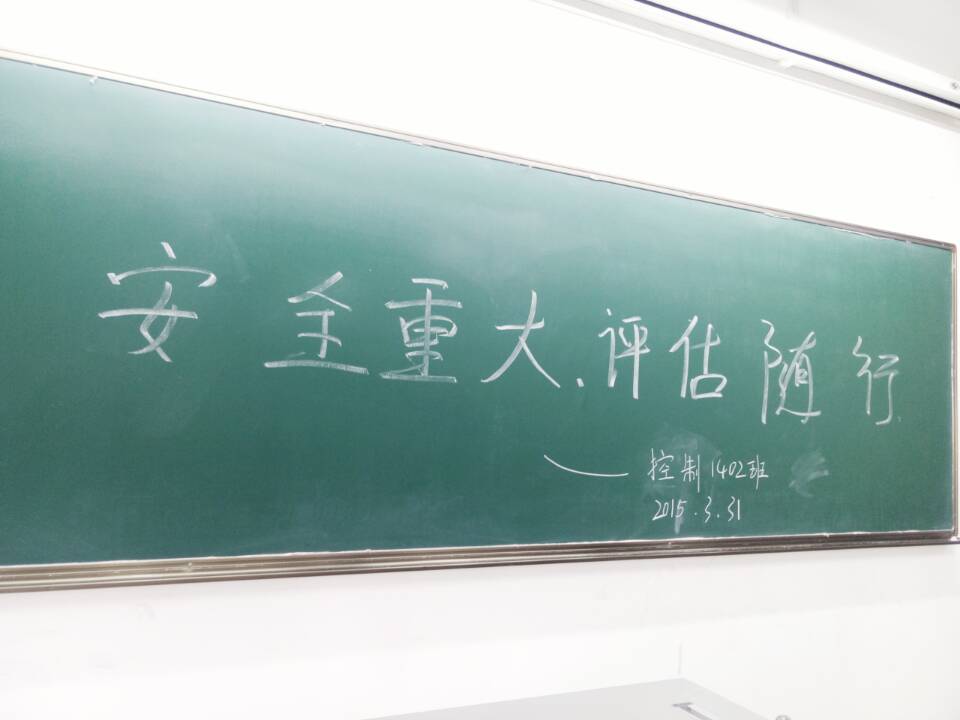 安全重大、评估随行
——控制1402班
2015.3.31